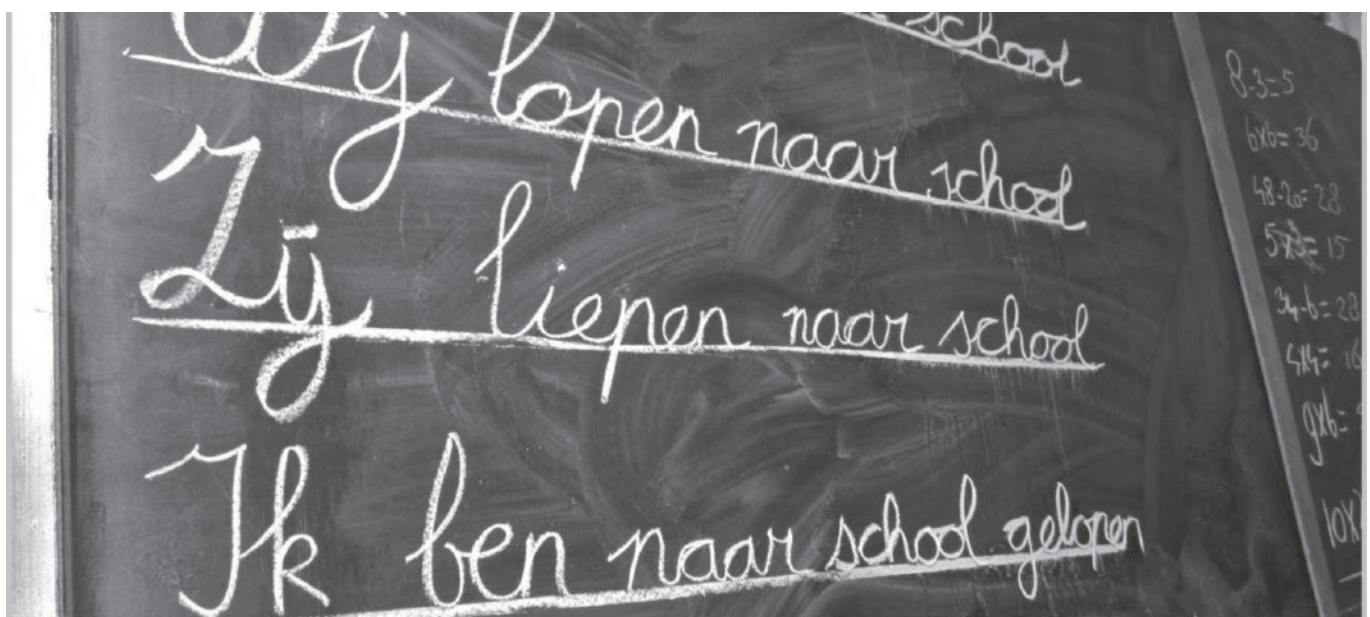 school
Wij lopen naar school
Zij liepen naar school
Ik ben naar school gelopen
8-3=5
6x6=36
48-20=28
5x3=15
34-6=28
4x4=16
9x6=
10x